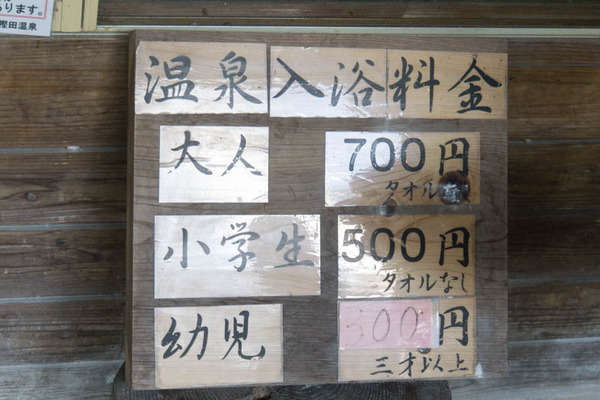 ります。
樫田温泉
温泉入浴料金
大人 700円
タオル
小学生 500円
タオルなし
幼児 300円
三才以上